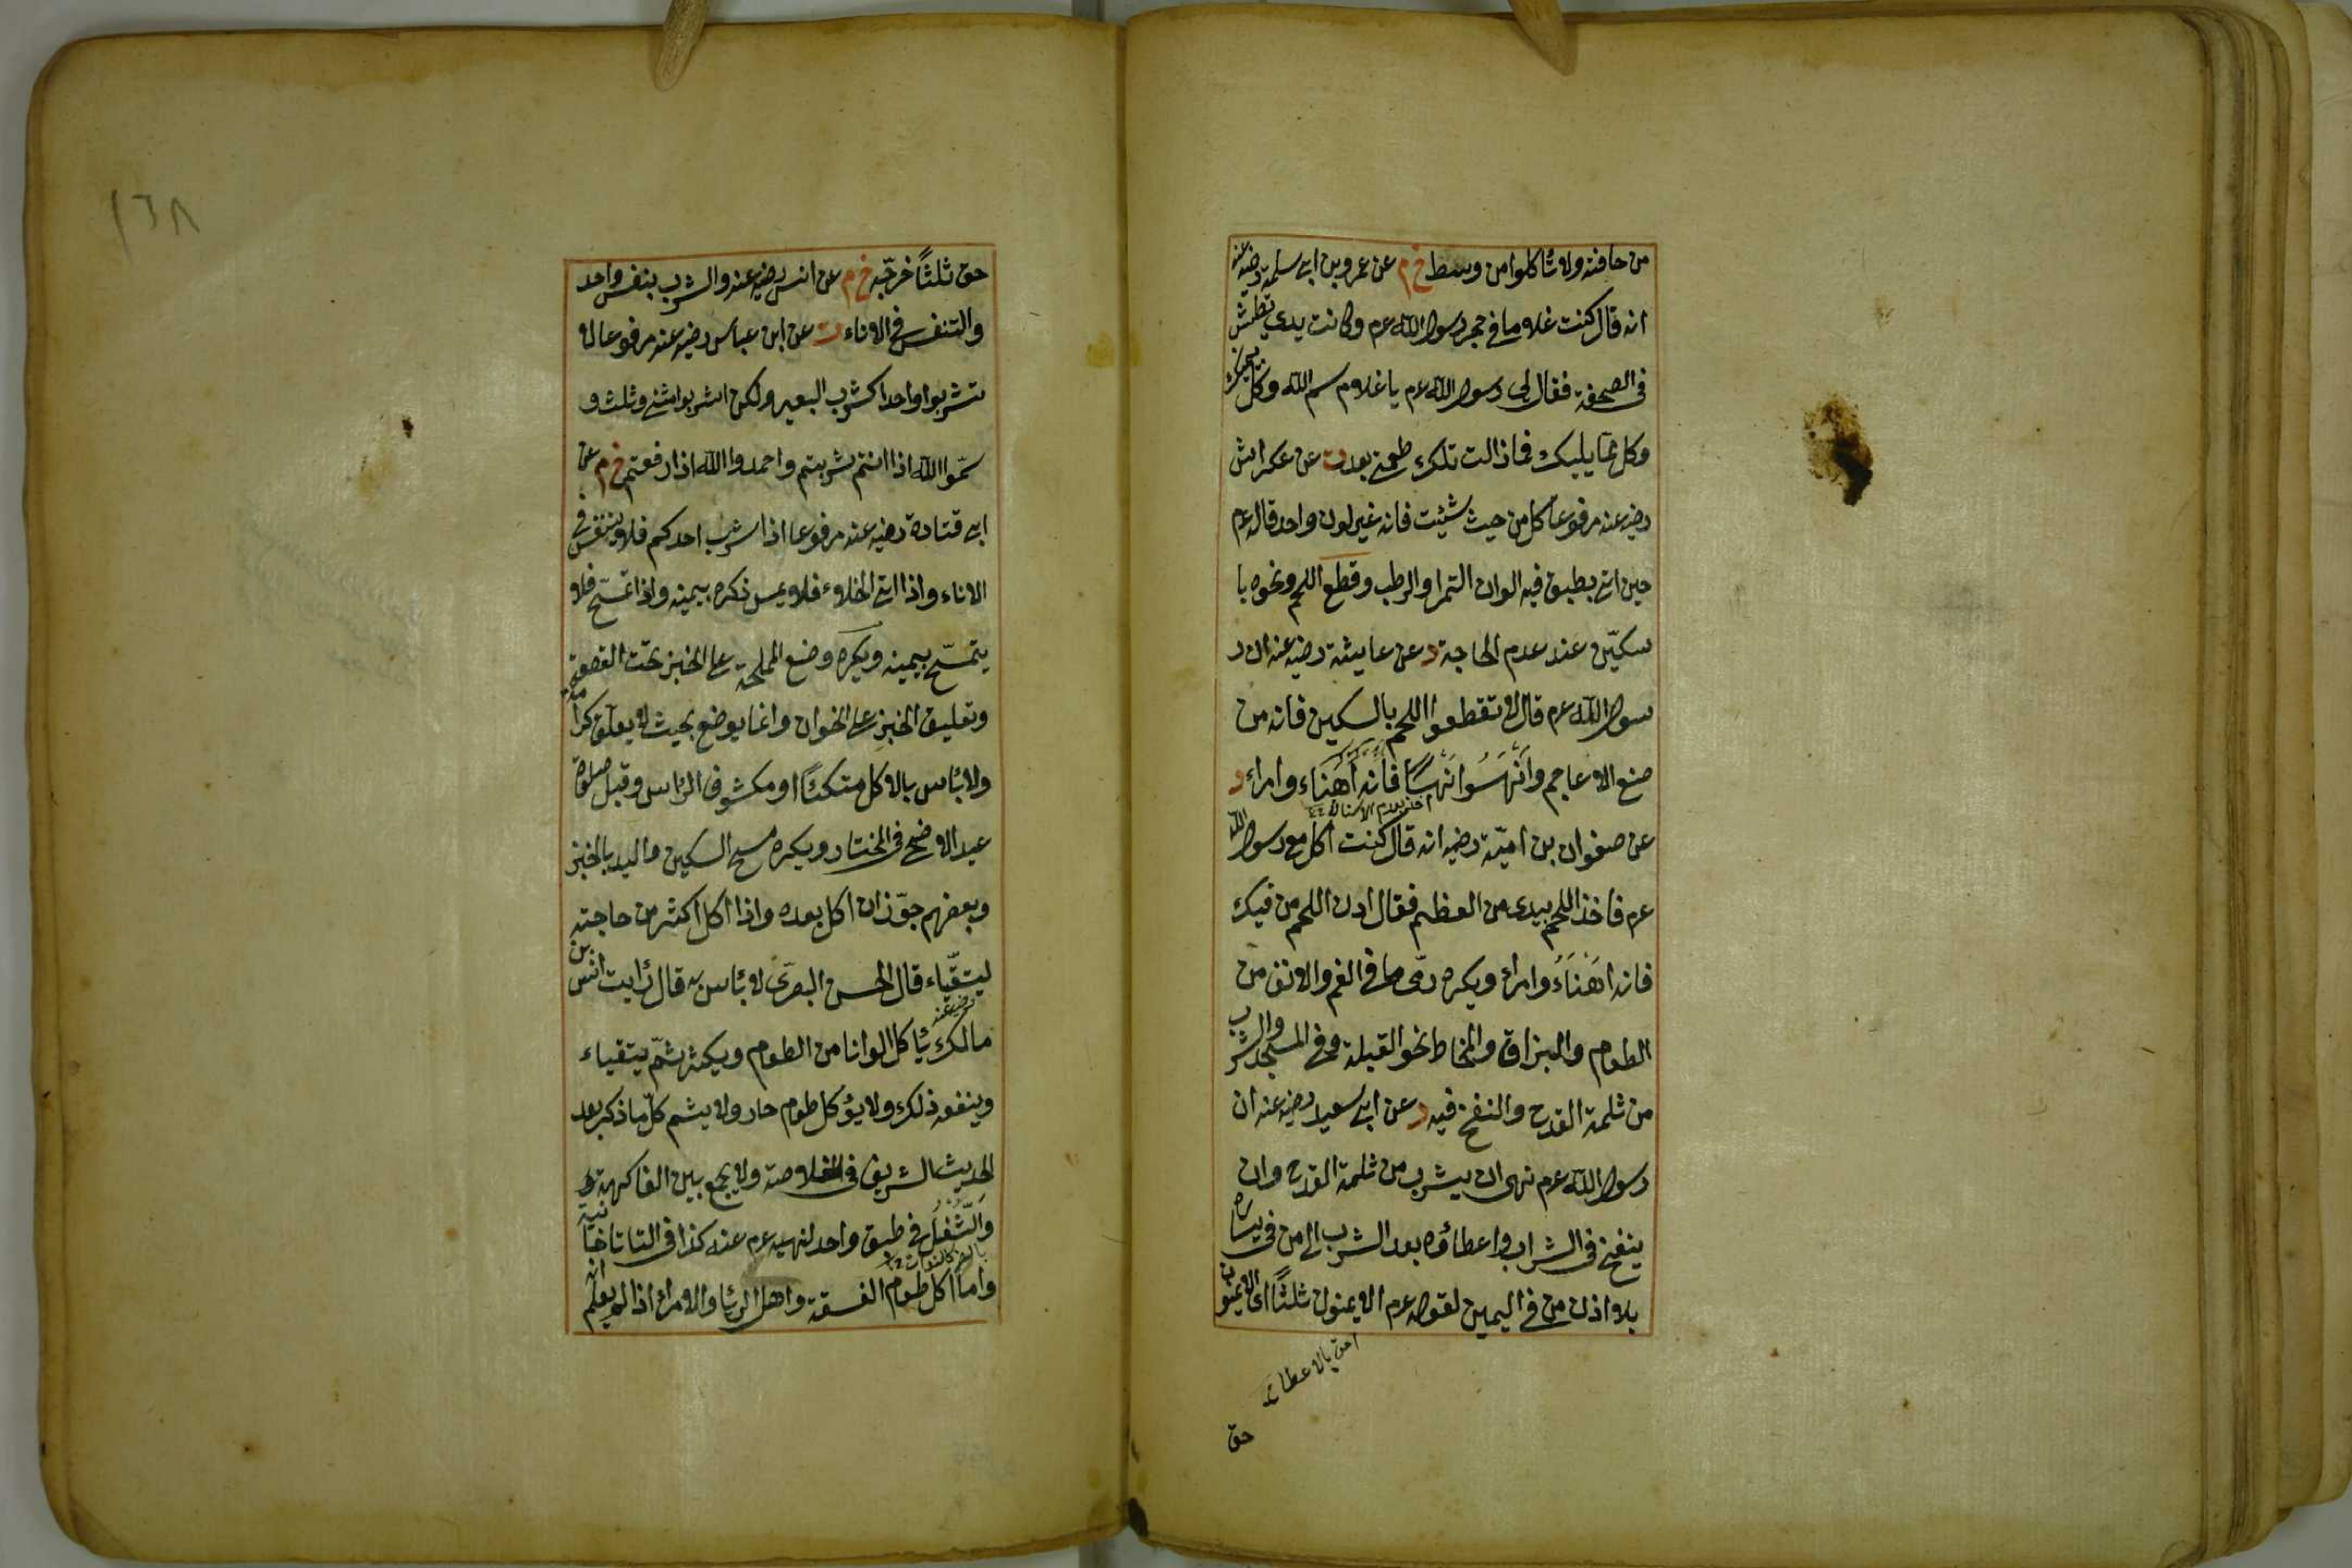 من حافته ولا تأكلوا من وسط خ م عن عمرو بن ابى سلمة رضيه عنه
انه قال كنت غلاما فى حجر رسول الله عم وكانت يدى تطيش
فى الصحفة فقال لى رسول الله عم يا غلام سم الله وكل بيمينك
وكل مما يليك فما ذالت تلك طعمتى بعد ت عن عكراش
رضيه عنه مرفوعا كل من حيث شئيت فانه غير لون واحد قاله عم
حين اتى بطبق فيه الوان التمر او الرطب وقطع اللحم ونحوه با
سكيّن عند عدم الحاجة د عن عايشة رضيه عنه ان ر
سول الله عم قال لا تقطعوا اللحم بالسكين فانه من
صنع الاعاجم وانْهَسُوا نَهْسًا فانه اَهْنَاء وامراء د
اخذ بمقدم الاسنان
عن صفوان بن اميّة رضيه انه قال كنت اكل مع رسول الله
عم فاخذ اللحم بيدى من العظم فقال ادن اللحم من فيك
فانه اهْنَاءُ وامراء ويكره رمى ما فى الفم والانف من
الطعام والبزاق والمخاط نحو القبلة وفى المسجد والشرب
من ثلمة القدح والنفخ فيه د عن ابى سعيد رضيه عنه ان
رسول الله عم نهى ان يشرب من ثلمة القدح وان
ينفخ فى الشراب واعطاؤه بعد الشرب الى من فى يساره
بلا اذن من فى اليمين لقوله عم الايمنون ثلثًا اى الايمنون
احق بالاعطاء
حق
١٦٨
حق ثلثًا خرّجه خ م عن انس رضيه عنه والشرب بنفس واحد
والتنفس فى الاناء ت عن ابن عباس رضيه عنه مرفوعا لا
تشربوا واحدا كشرب البعير ولكن اشربوا مثنى وثلث و
سمّوا الله اذا انتم شربتم واحمدوا الله اذا رفعتم خ م عن
ابى قتادة رضيه عنه مرفوعا اذا شرب احدكم فلا يتنفس فى
الاناء واذا اتى الخلاء فلا يمس ذكره بيمينه واذا تمسّح فلا
يتمسّح بيمينه ويكره وضع المملحة على الخبز تحت القصعة
وتعليق الخبز على الخوان وانما يوضع بحيث لا يعلّق كرامة
ولا بأس بالاكل متكئًا او مكشوف الرأس وقبل صلوة
عيد الاضحى فى المختار ويكره مسح السكين واليد بالخبز
وبعضهم جوّز ان اكل بعده واذا اكل اكثر من حاجته
ليتقيّاء قال الحسن البصرى لا بأس به قال رأيت انس بن
مالك رضيه عنه يأكل الوانا من الطعام ويكثر ثمّ يتقياء
وينفعه ذلك ولا يؤكل طعام حار ولا يشم كلّ ما ذكر بعد
الحديث الشريف فى الخلاصة ولا يجمع بين الفاكهة
والثُّفْل فى طبق واحد لنهيه عم عنه كذا فى التاتارخانية
واما اكل طعام الفسقة واهل الربا والامراء اذا لم يعلم انه